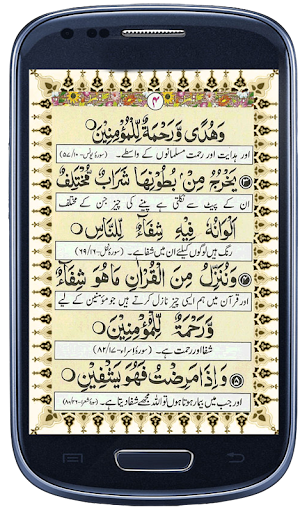 ۴
وَهُدًى وَّرَحْمَةٌ لِّلْمُؤْمِنِيْنَ
اور ہدایت اور رحمت مسلمانوں کے واسطے۔ (سورۂ یونس-۵۷/۱۰)
۳ يَخْرُجُ مِنْۢ بُطُوْنِهَا شَرَابٌ مُّخْتَلِفٌ
ان کے پیٹ سے نکلتی ہے پینے کی چیز جن کے مختلف
اَلْوَانُهٗ فِيْهِ شِفَآءٌ لِّلنَّاسِ
رنگ ہیں لوگوں کیلئے ان میں شفا ہے۔ (سورۂ نحل-۶۹/۱۶)
۴ وَنُنَزِّلُ مِنَ الْقُرْاٰنِ مَاهُوَ شِفَآءٌ
اور قرآن میں ہم ایسی چیز نازل کرتے ہیں جو مؤمنین کے لیے
وَّرَحْمَةٌ لِّلْمُؤْمِنِيْنَ
شفا اور رحمت ہے۔ (سورۂ اسراء-۸۲/۱۷)
۵ وَاِذَا مَرِضْتُ فَهُوَ يَشْفِيْنِ
اور جب میں بیمار ہوتا ہوں تو اللہ مجھے شفا دیتا ہے۔